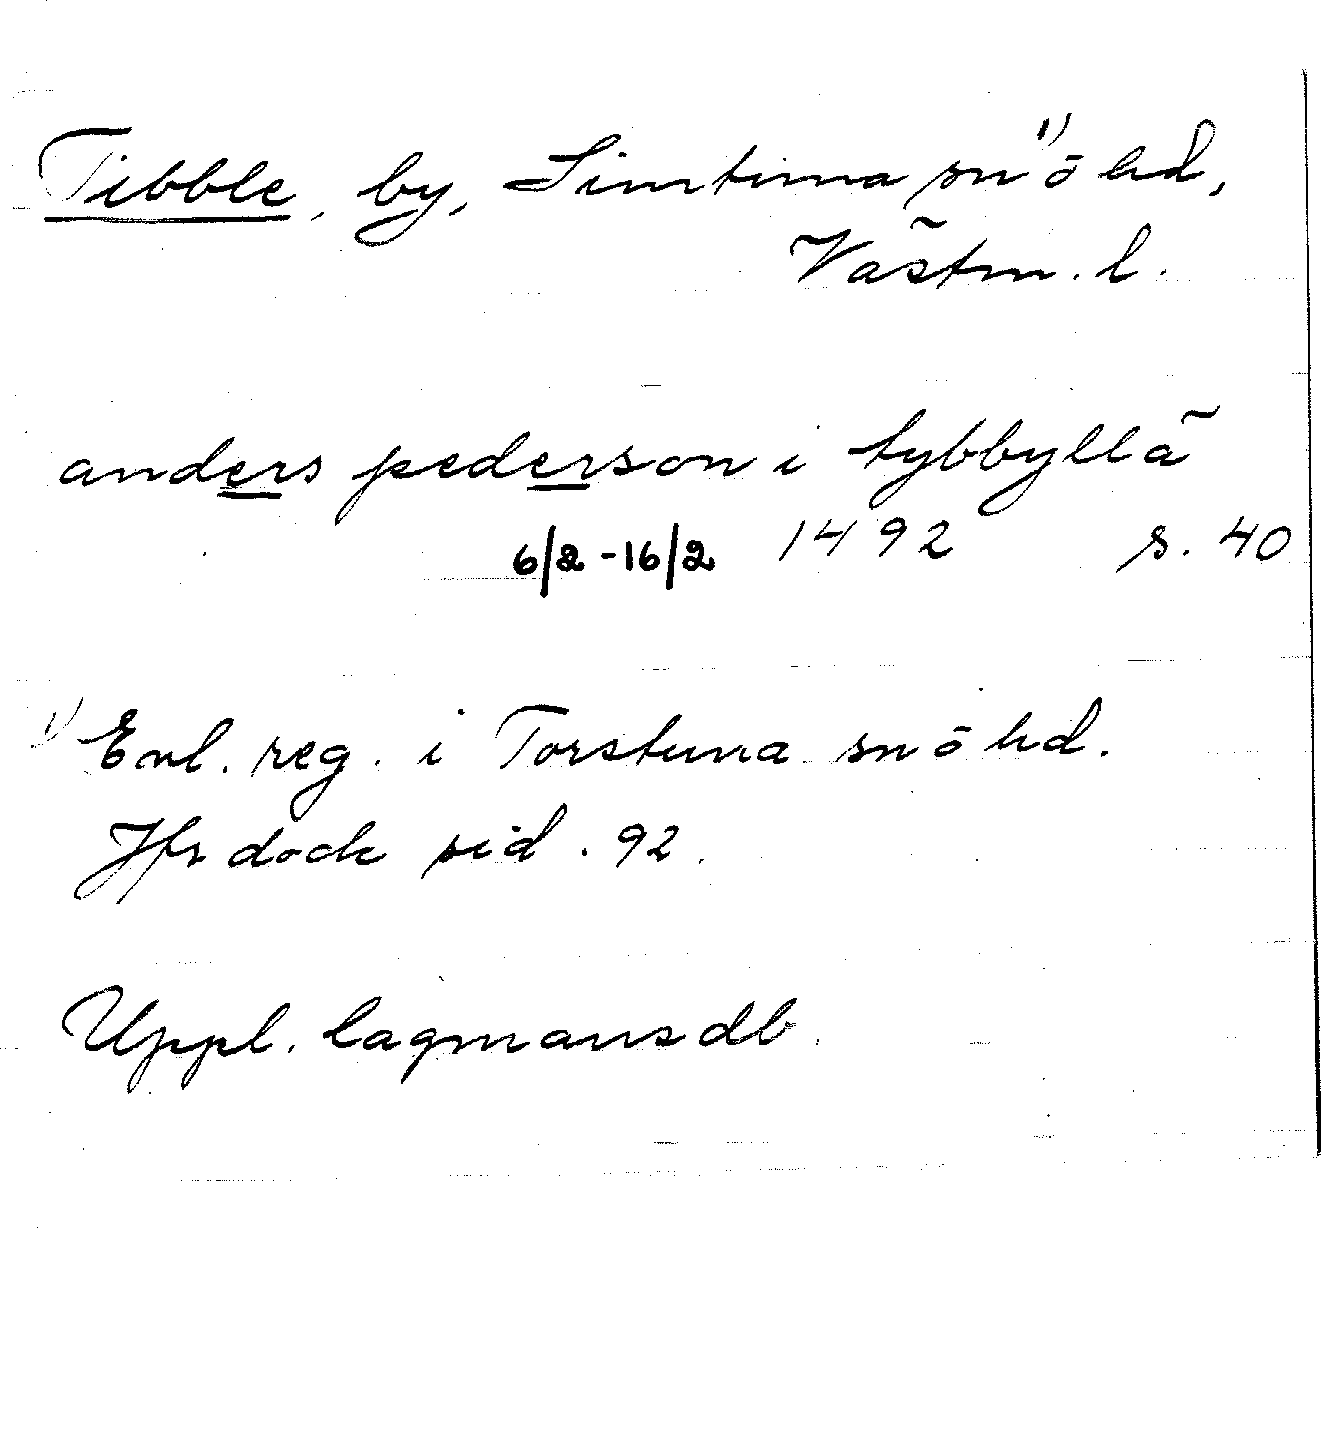 Tibble, by, Simtuna sn ¹⁾ o hd,
Västm. l.
anders pederson i tybbyllä
6/2-16/2 1492 s. 40
¹⁾ Enl. reg. i Torstuna sn o hd.
Jfr dock sid. 92.
Uppl. lagmansdb.